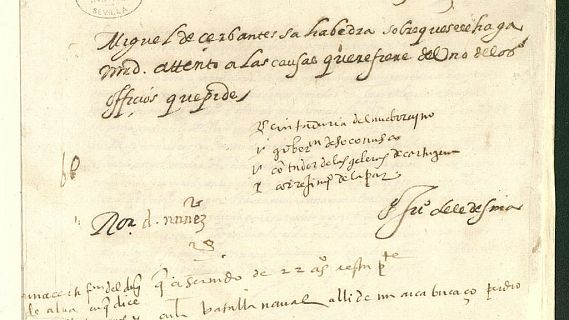 SEVILLA
Miguel de cerbantes sahabedra sobre que se le haga
md. attento a las causas que refiere del uno de los
officios que pide
contaduria del nuebo reyno
gobern de soconusco
contador de las galeras de cartagena
corregimio de la paz
Ror. d. nunez
Ju. de ledesma
q a seruido de 22 años
batalla naual alli de un arcabucaço perdio